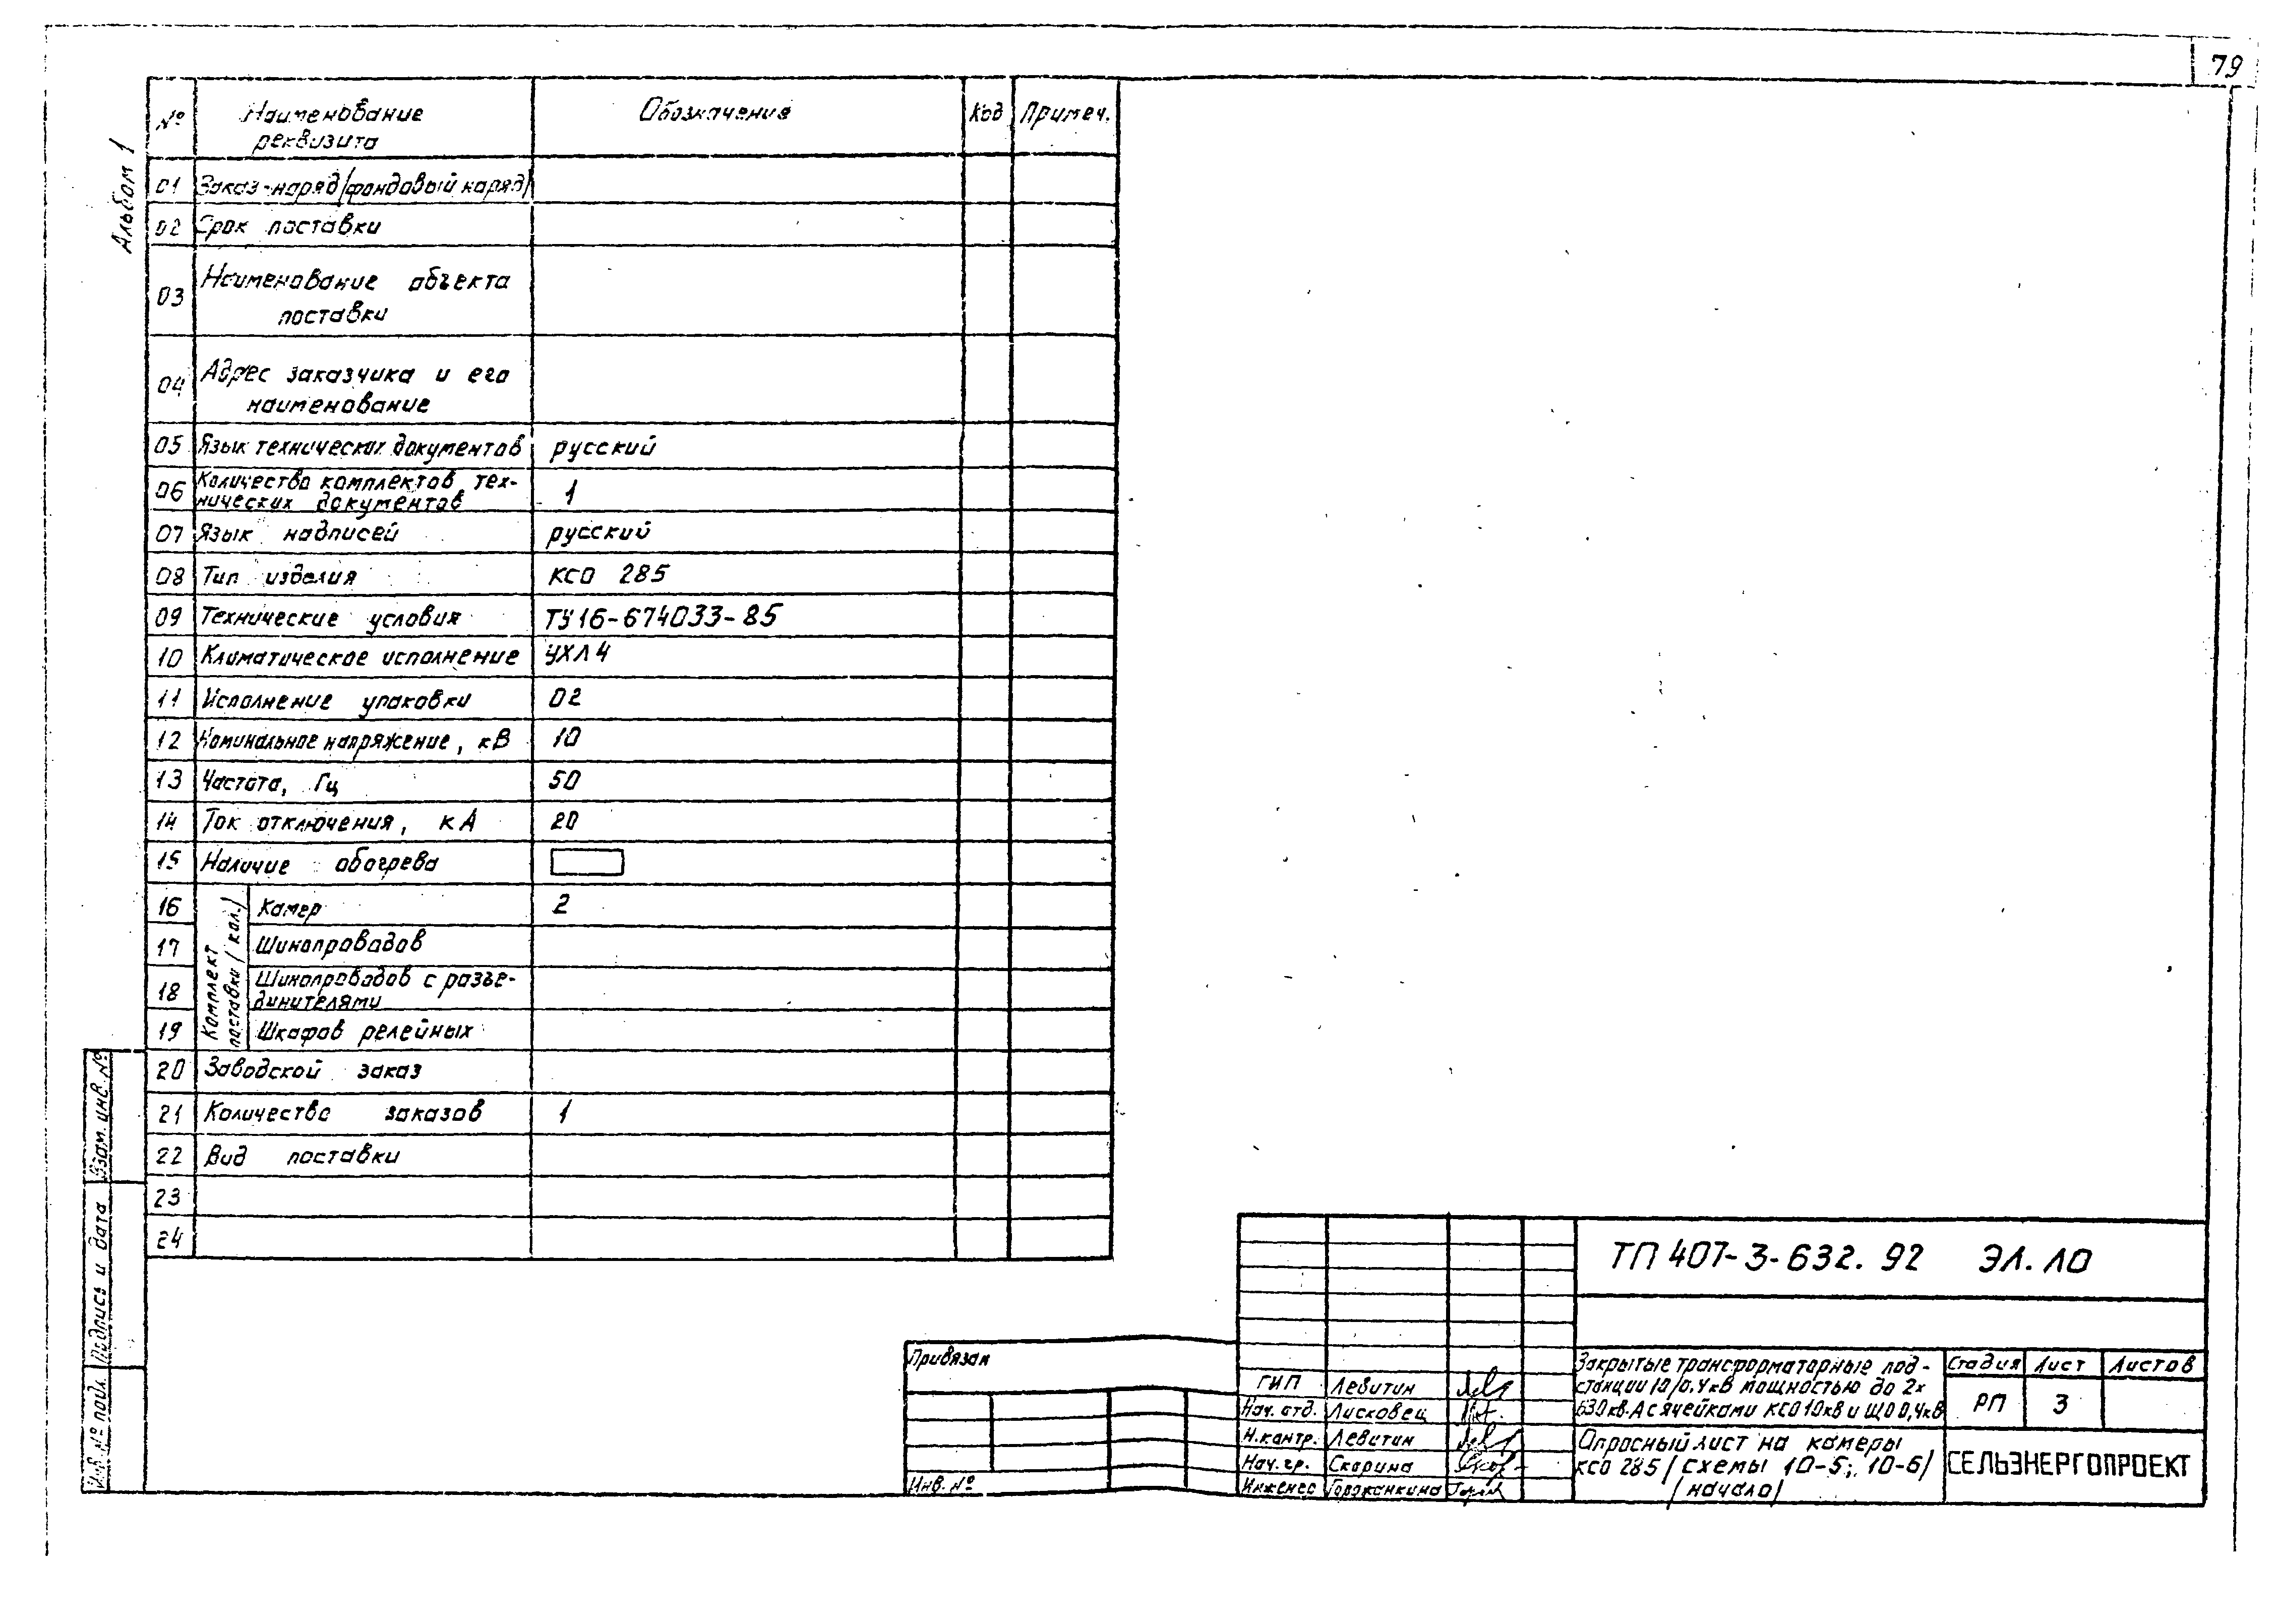 79
Альбом 1
№ Наименование реквизита Обозначения Код Примеч.
01 Заказ-наряд/фондовый наряд/
02 Срок поставки
03 Наименование объекта
поставки
04 Адрес заказчика и его
наименование
05 Язык технических документов русский
06 Количество комплектов тех-
нических документов 1
07 Язык надписей русский
08 Тип изделия КСО 285
09 Технические условия ТУ16-674033-85
10 Климатическое исполнение УХЛ4
11 Исполнение упаковки 02
12 Номинальное напряжение, кВ 10
13 Частота, Гц 50
14 Ток отключения, кА 20
15 Наличие обогрева
Комплект
поставки (кол.)
16 Камер 2
17 Шинопроводов
18 Шинопроводов с разъе-
динителями
19 Шкафов релейных
20 Заводской заказ
21 Количество заказов 1
22 Вид поставки
23
24
Взам. инв. №
Подпись и дата
Инв. № подл.
Привязан
Инв. №
ТП 407-3-632.92 ЭЛ.ЛО
ГИП Левитин
Нач. отд. Лисковец
Н.контр. Левитин
Нач. гр. Скорина
Инженер Горожанкина
Закрытые трансформаторные под-
станции 10/0,4кВ мощностью до 2х
630кВ.А с ячейками КСО 10кВ и ЩО 0,4кВ
Стадия Лист Листов
РП 3
Опросный лист на камеры
КСО 285/схемы 10-5; 10-6/
/начало/
СЕЛЬЭНЕРГОПРОЕКТ